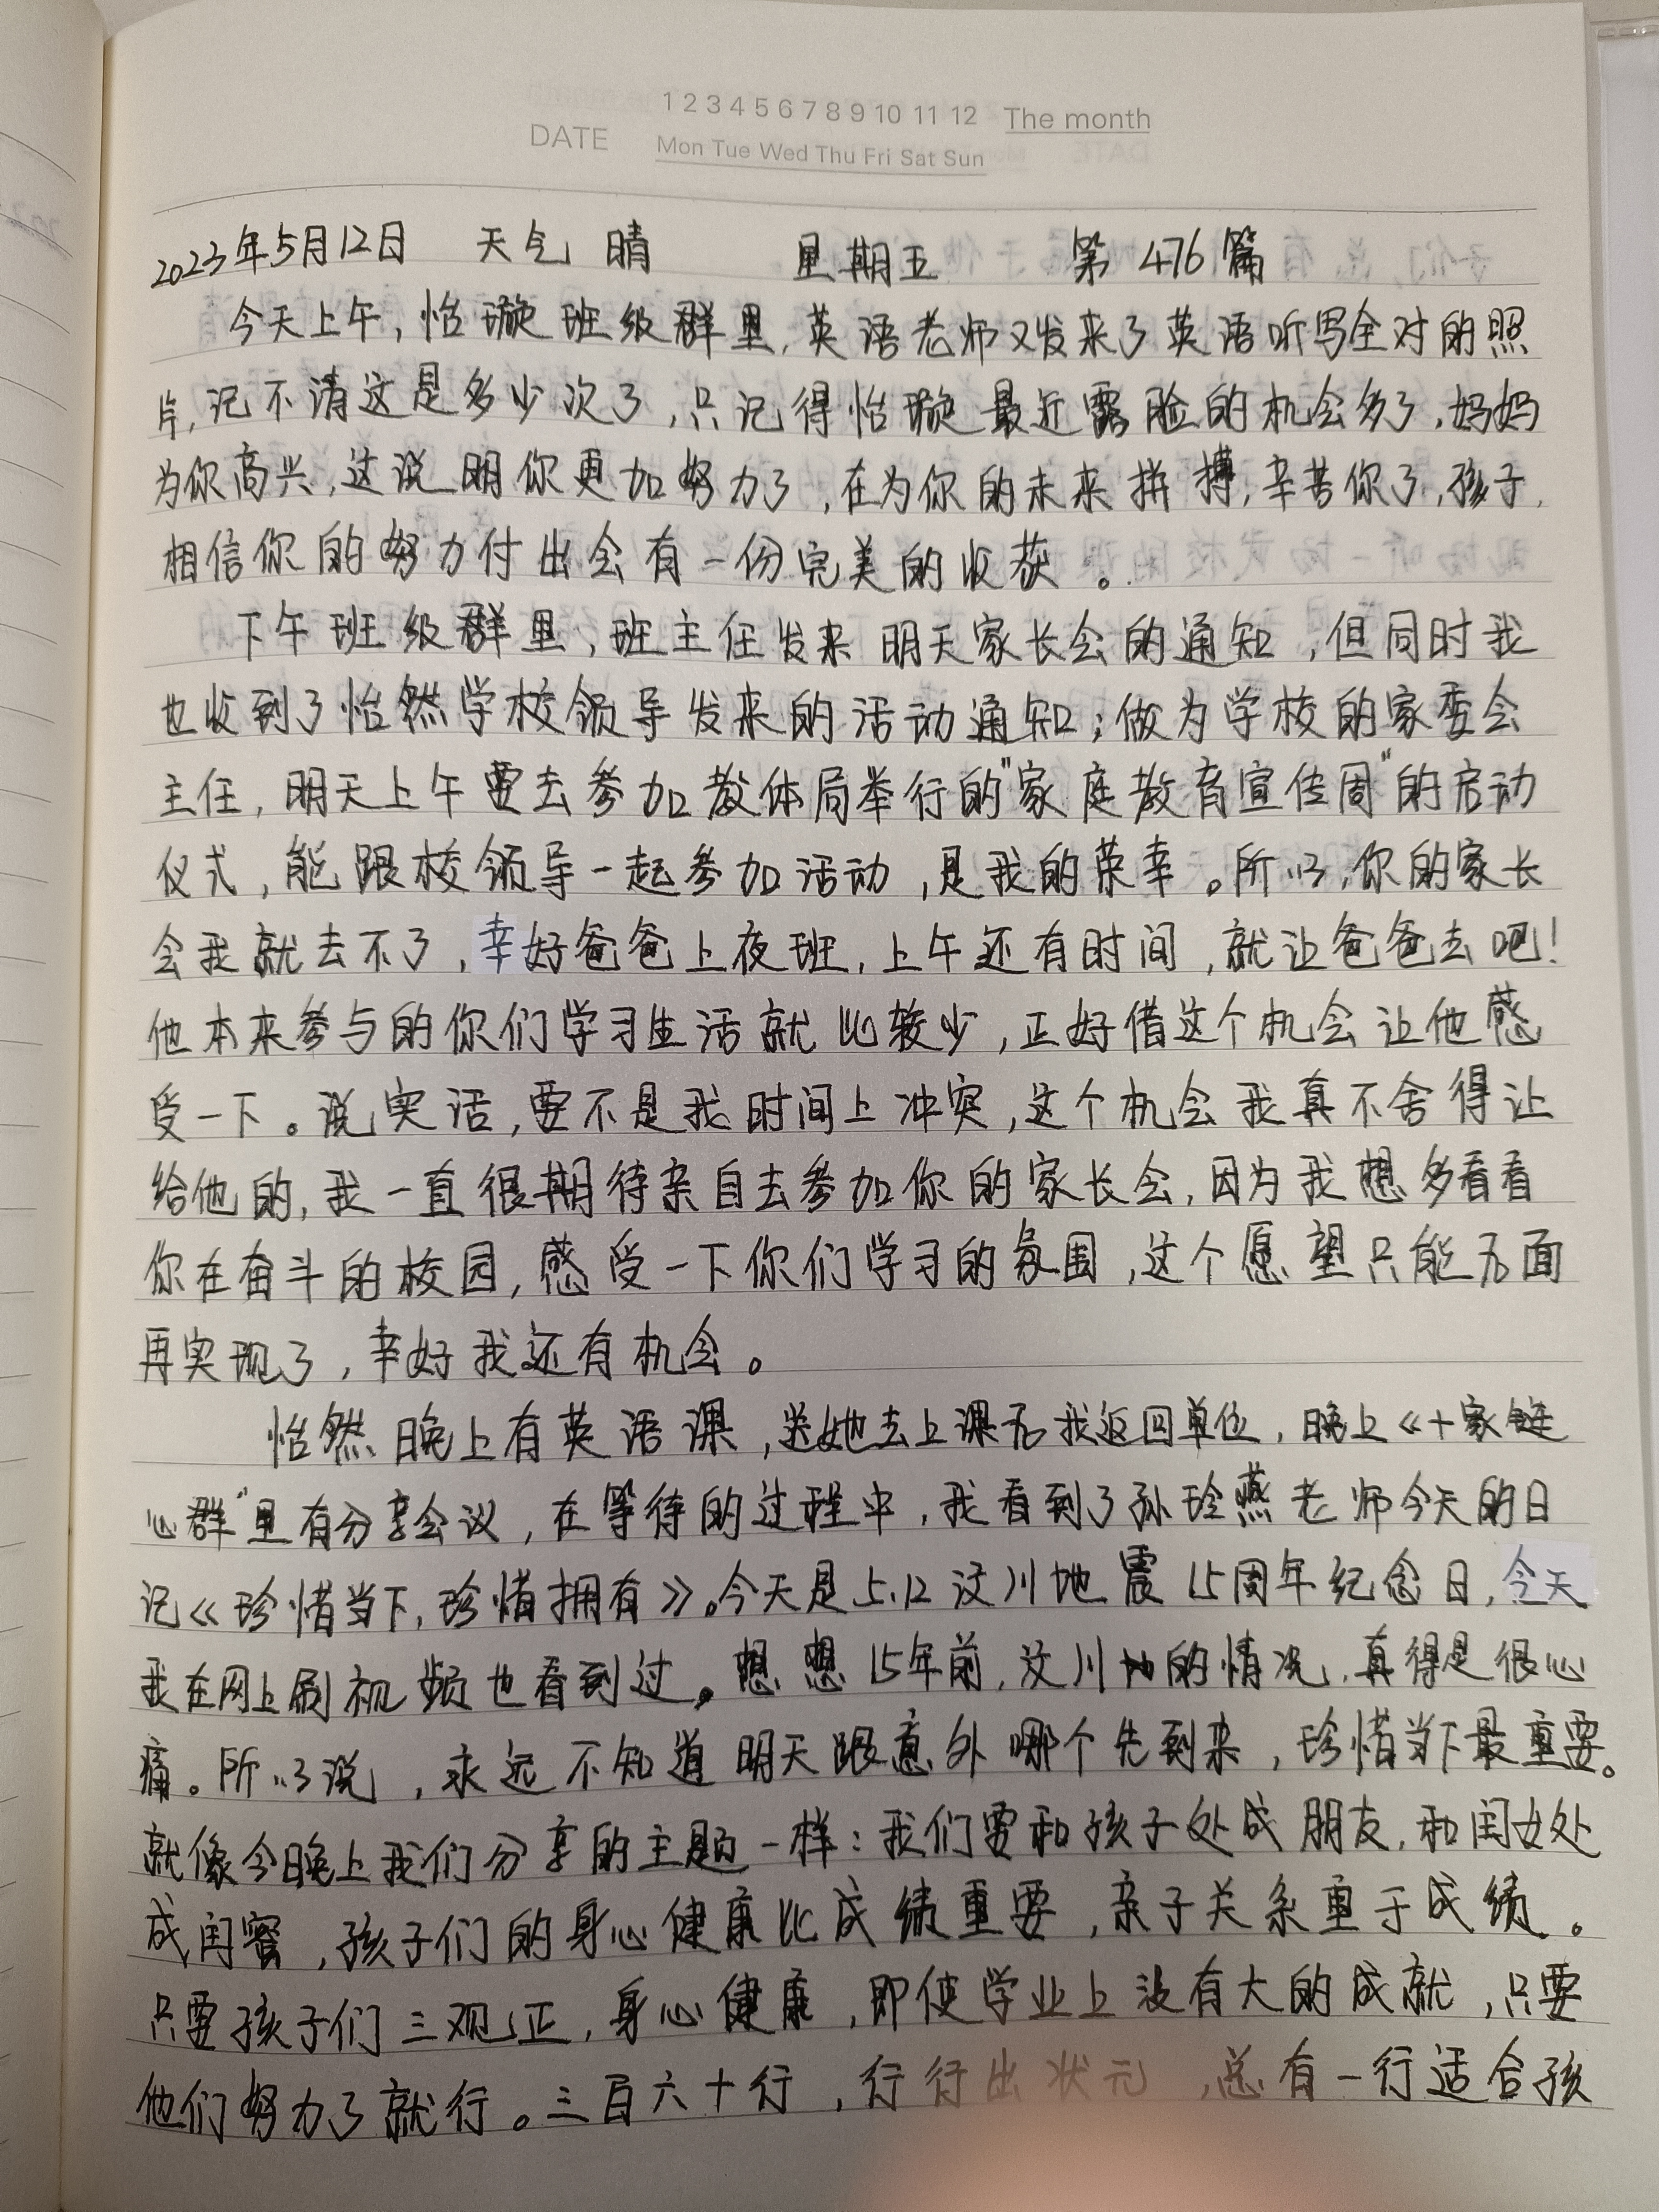 1 2 3 4 5 6 7 8 9 10 11 12 The month
DATE
Mon Tue Wed Thu Fri Sat Sun
2023年5月12日 天气 晴 星期五 第 476 篇
今天上午,怡璇班级群里,英语老师又发来了英语听写全对的照
片,记不清这是多少次了,只记得怡璇最近露脸的机会多了,妈妈
为你高兴,这说明你更加努力了,在为你的未来拼搏,辛苦你了,孩子,
相信你的努力付出会有一份完美的收获。
下午班级群里,班主任发来明天家长会的通知,但同时我
也收到了怡然学校领导发来的活动通知;做为学校的家委会
主任,明天上午要去参加教体局举行的"家庭教育宣传周"的启动
仪式,能跟校领导一起参加活动,是我的荣幸。所以,你的家长
会我就去不了,幸好爸爸上夜班,上午还有时间,就让爸爸去吧!
他本来参与的你们学习生活就比较少,正好借这个机会让他感
受一下。说实话,要不是我时间上冲突,这个机会我真不舍得让
给他的,我一直很期待亲自去参加你的家长会,因为我想多看看
你在奋斗的校园,感受一下你们学习的氛围,这个愿望只能后面
再实现了,幸好我还有机会。
怡然晚上有英语课,送她去上课后我返回单位,晚上《十家链
心群"里有分享会议,在等待的过程中,我看到了孙珍燕老师今天的日
记《珍惜当下,珍惜拥有》。今天是5.12汶川地震15周年纪念日,今天
我在网上刷视频也看到过。想想15年前,汶川地的情况,真得是很心
痛。所以说,永远不知道明天跟意外哪个先到来,珍惜当下最重要。
就像今晚上我们分享的主题一样:我们要和孩子处成朋友,和闺女处
成闺蜜,孩子们的身心健康比成绩重要,亲子关系重于成绩。
只要孩子们三观正,身心健康,即使学业上没有大的成就,只要
他们努力了就行。三百六十行,行行出状元,总有一行适合孩